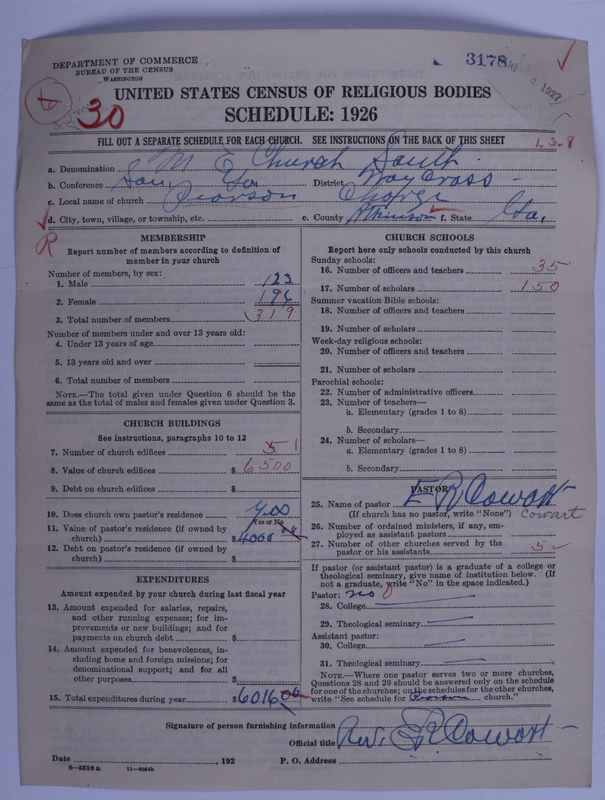 DEPARTMENT OF COMMERCE
BUREAU OF THE CENSUS
WASHINGTON
3178
1927
30
UNITED STATES CENSUS OF RELIGIOUS BODIES
SCHEDULE: 1926
FILL OUT A SEPARATE SCHEDULE FOR EACH CHURCH. SEE INSTRUCTIONS ON THE BACK OF THIS SHEET
1.3.8
a. Denomination M E Church South
b. Conference So. Ga District Way Cross
c. Local name of church Pearson Charge
d. City, town, village, or township, etc. e. County Atkinson f. State Ga,
R
MEMBERSHIP
Report number of members according to definition of
member in your church
Number of members, by sex:
1. Male 123
2. Female 196
3. Total number of members 319
Number of members under and over 13 years old:
4. Under 13 years of age
5. 13 years old and over
6. Total number of members
NOTE.—The total given under Question 6 should be the
same as the total of males and females given under Question 3.
CHURCH BUILDINGS
See instructions, paragraphs 10 to 12
7. Number of church edifices 5 1
8. Value of church edifices $ 6500
9. Debt on church edifices $
10. Does church own pastor's residence yes
Yes or No
11. Value of pastor's residence (if owned by
church) $ 4000
12. Debt on pastor's residence (if owned by
church) $
EXPENDITURES
Amount expended by your church during last fiscal year
13. Amount expended for salaries, repairs,
and other running expenses; for im-
provements or new buildings; and for
payments on church debt $
14. Amount expended for benevolences, in-
cluding home and foreign missions; for
denominational support; and for all
other purposes $
15. Total expenditures during year $ 6016 00
CHURCH SCHOOLS
Report here only schools conducted by this church
Sunday schools:
16. Number of officers and teachers 35
17. Number of scholars 150
Summer vacation Bible schools:
18. Number of officers and teachers
19. Number of scholars
Week-day religious schools:
20. Number of officers and teachers
21. Number of scholars
Parochial schools:
22. Number of administrative officers
23. Number of teachers—
a. Elementary (grades 1 to 8)
b. Secondary
24. Number of scholars—
a. Elementary (grades 1 to 8)
b. Secondary
PASTOR
25. Name of pastor E R Cowart
(If church has no pastor, write "None") Cowart
26. Number of ordained ministers, if any, em-
ployed as assistant pastors
27. Number of other churches served by the
pastor or his assistants 5
If pastor (or assistant pastor) is a graduate of a college or
theological seminary, give name of institution below. (If
not a graduate, write "No" in the space indicated.)
Pastor: no
28. College
29. Theological seminary
Assistant pastor:
30. College
31. Theological seminary
NOTE.—Where one pastor serves two or more churches,
Questions 28 and 29 should be answered only on the schedule
for one of the churches; on the schedules for the other churches,
write "See schedule for Pearson church."
Signature of person furnishing information
Official title Rev. E R Cowart
Date , 192 P. O. Address